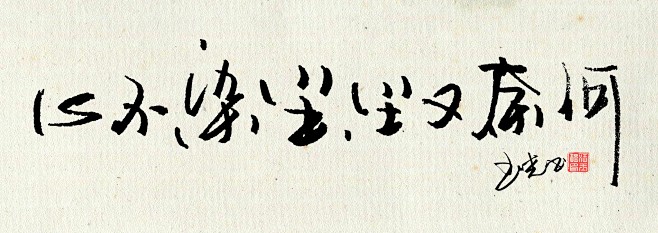 心不染尘尘又奈何